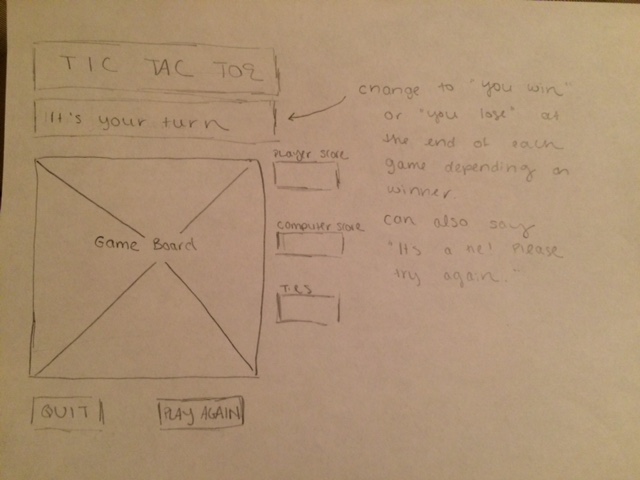 TIC TAC TOE
It's your turn
change to "you win"
or "you lose" at
the end of each
game depending on
winner.
can also say
"It's a tie! Please
try again."
Player score
Computer score
Game Board
TIES
QUIT
PLAY AGAIN